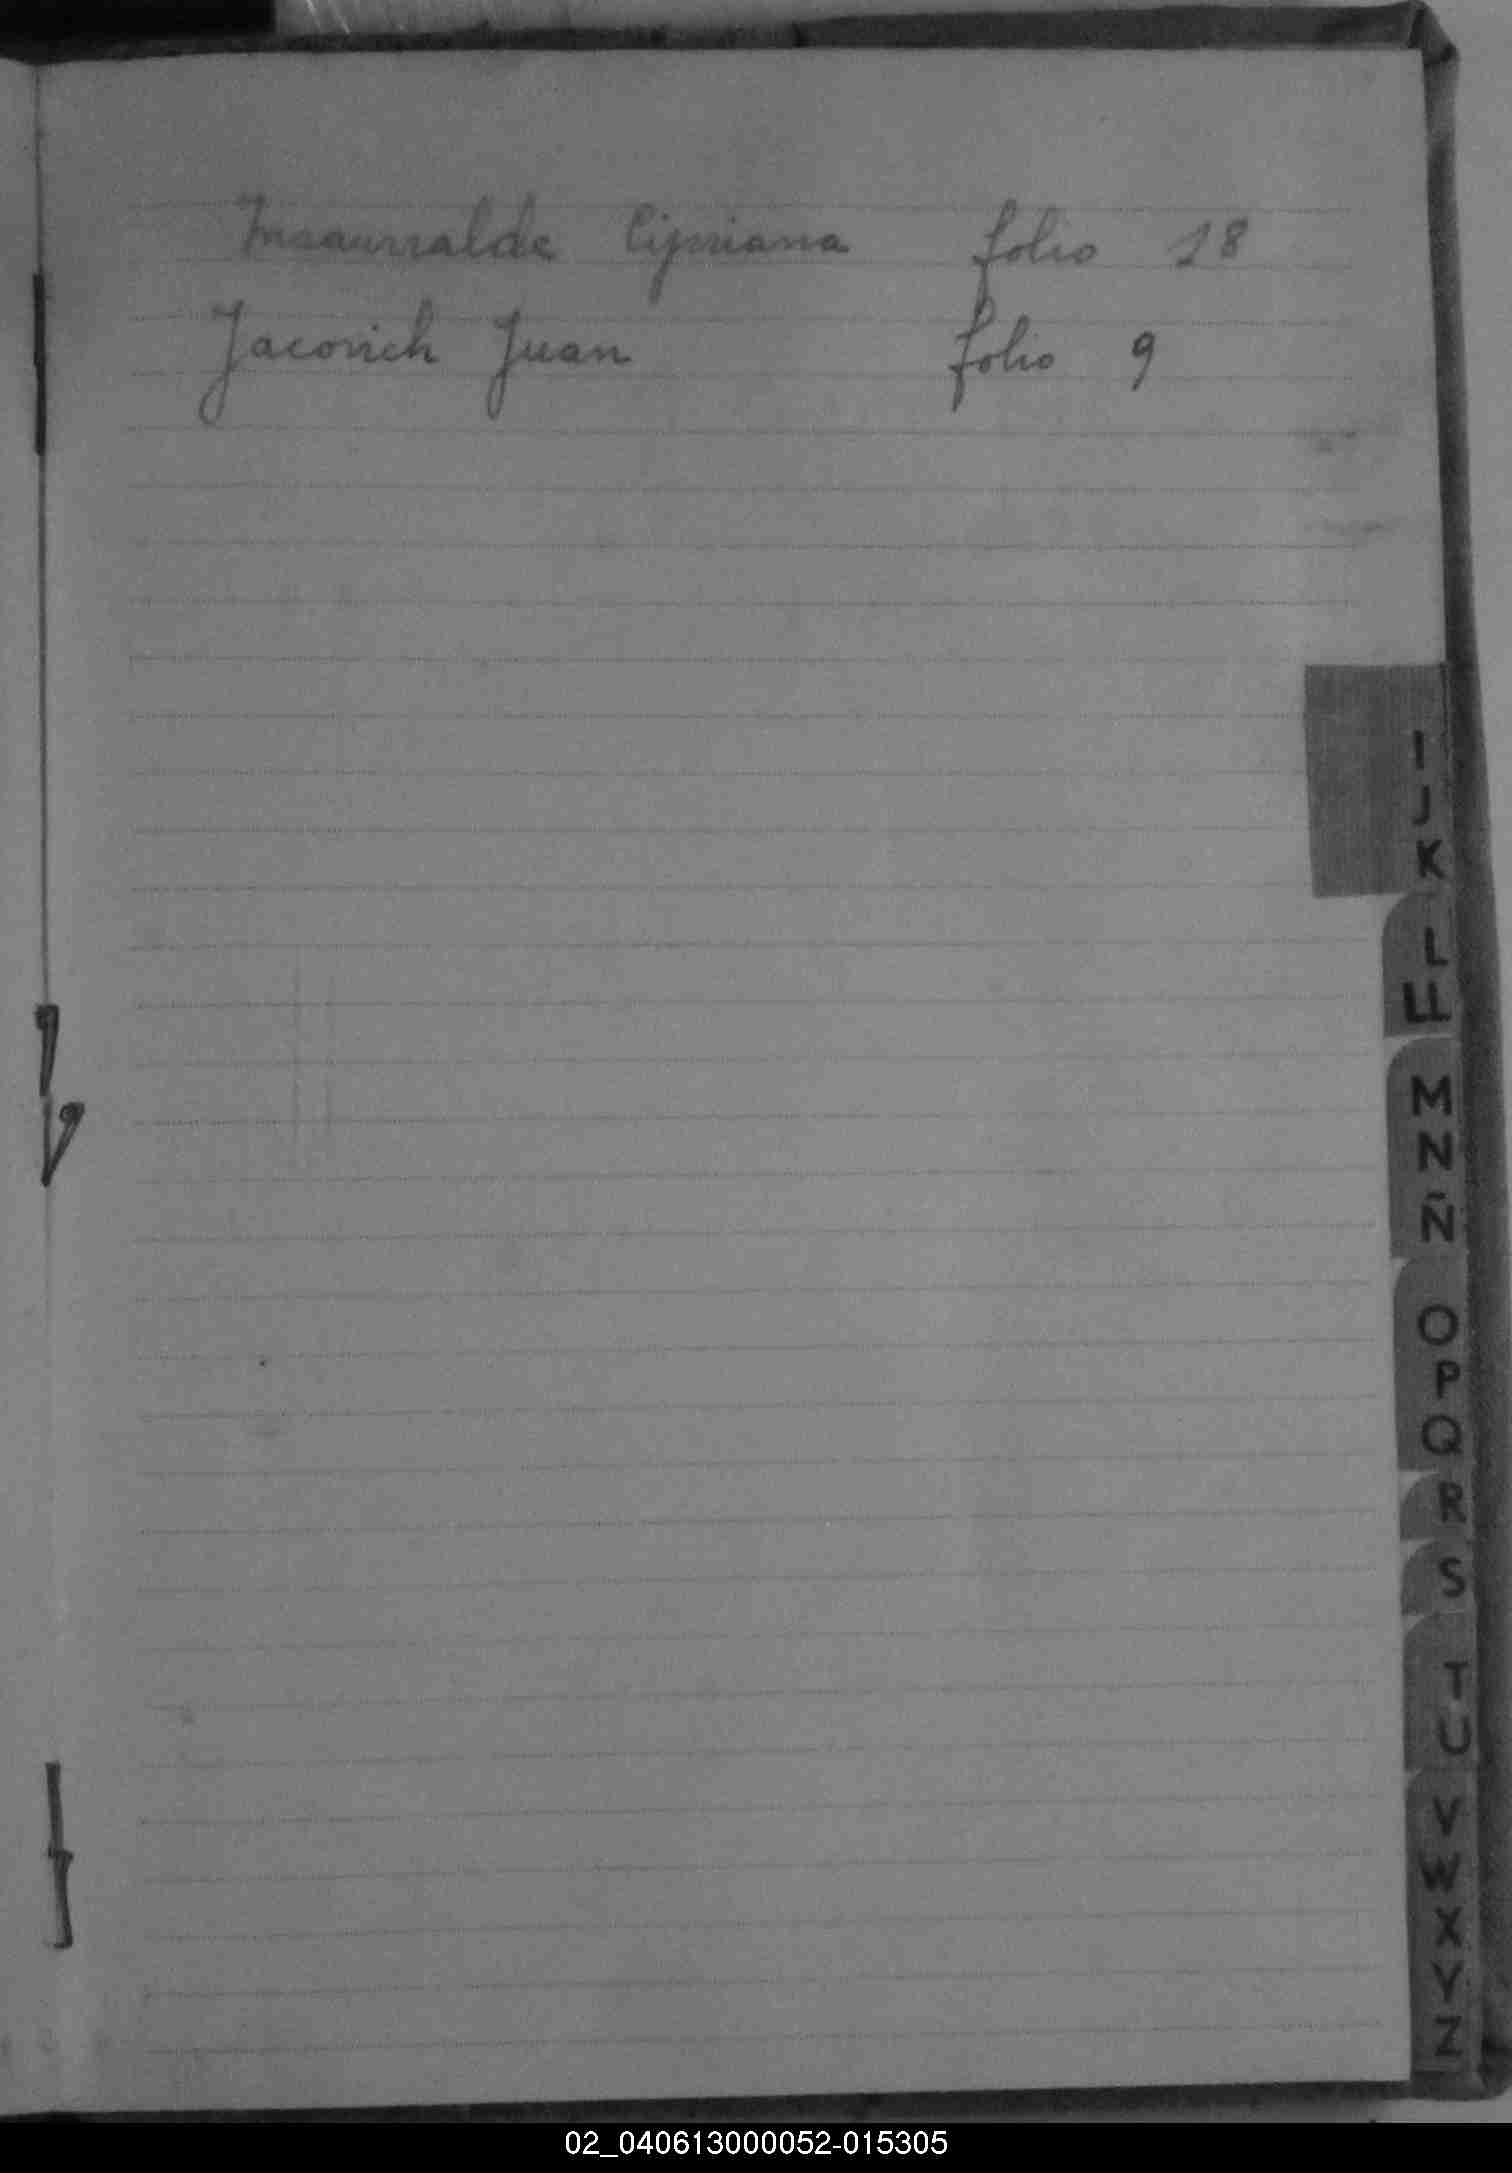 Insaurralde Cipriana folio 18
Jacovich Juan folio 9
I
J
K
L
LL
M
N
Ñ
O
P
Q
R
S
T
U
V
W
X
Y
Z
02_040613000052-015305